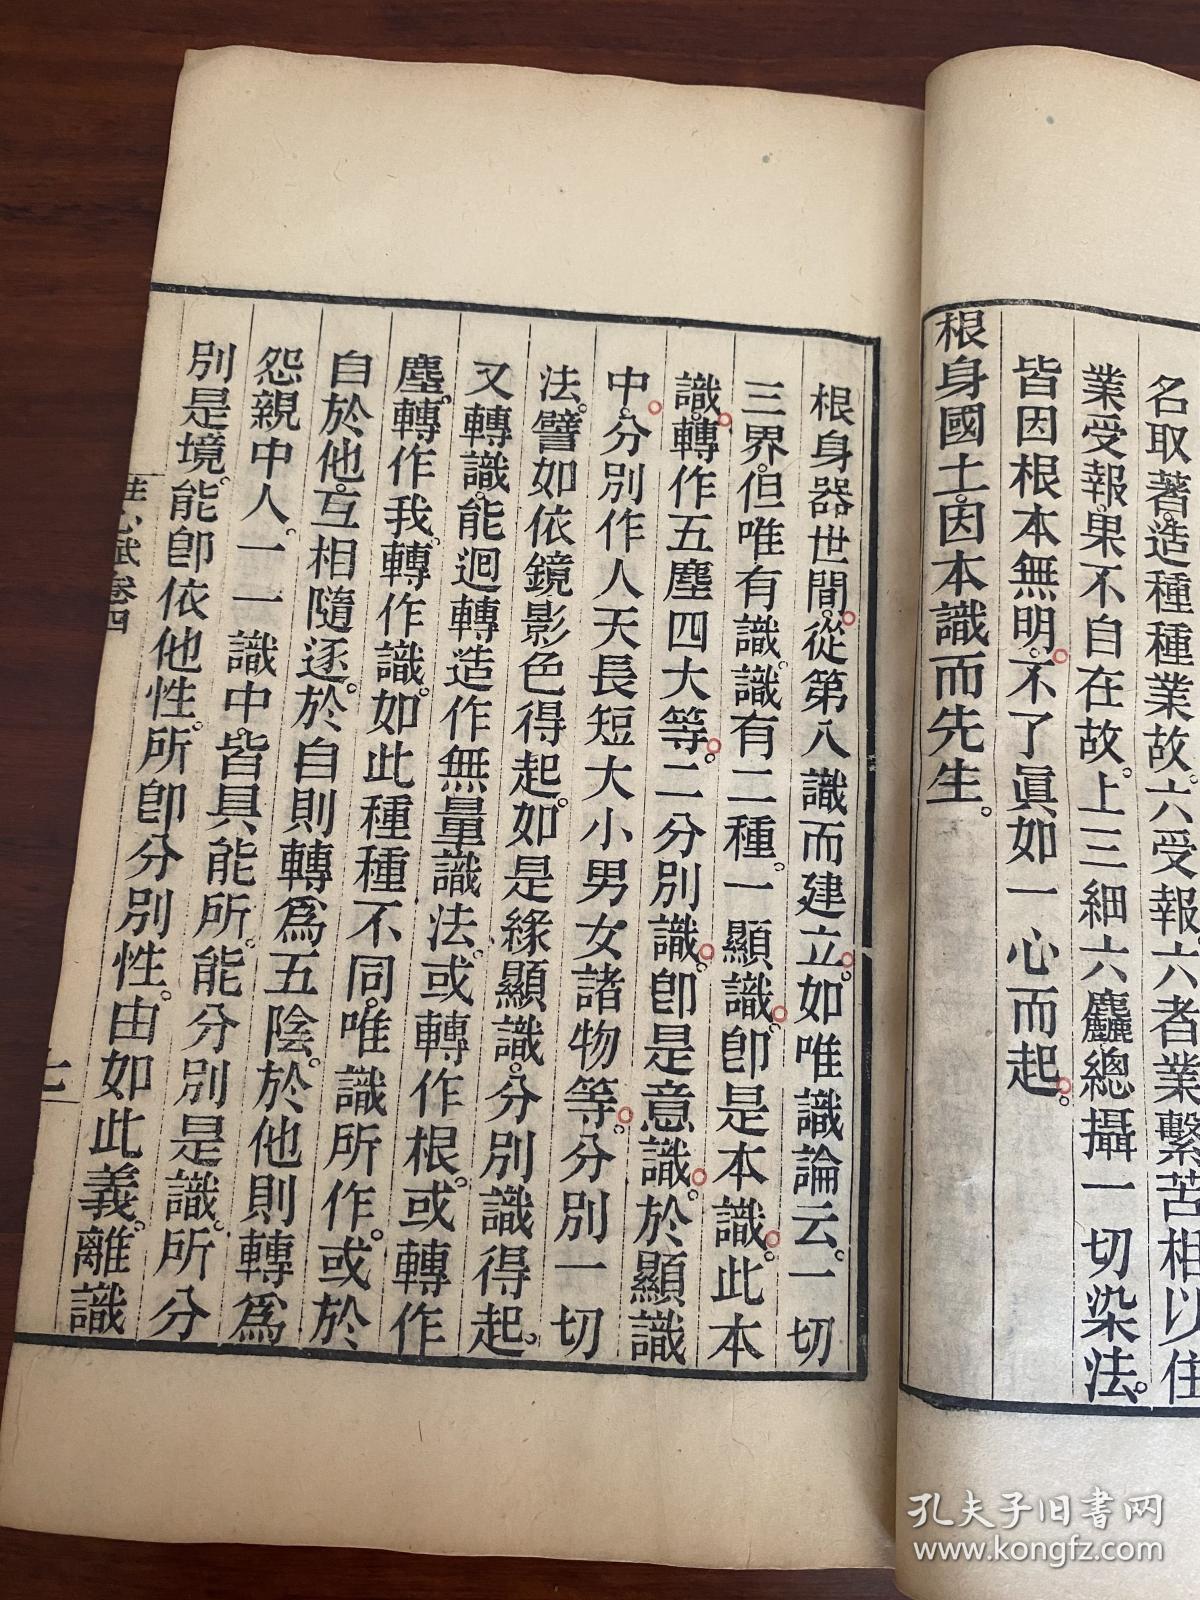 名取著。造種種業故。六受報。六者業繫苦相。以住
業受報果不自在故。上三細六麤。總攝一切染法。
皆因根本無明。不了眞如一心而起。
根身國土。因本識而先生。
根身器世間。從第八識而建立。如唯識論云。一切
三界。但唯有識。識有二種。一顯識。卽是本識。此本
識。轉作五塵四大等。二分別識。卽是意識。於顯識
中。分別作人天長短大小男女諸物等。分別一切
法。譬如依鏡影色得起。如是緣顯識。分別識得起。
又轉識。能迴轉造作無量識法。或轉作根。或轉作
塵。轉作我。轉作識。如此種種不同。唯識所作。或於
自於他。互相隨逐。於自則轉爲五陰。於他則轉爲
怨親中人。一一識中。皆具能所。能分別是識。所分
別是境。能卽依他性。所卽分別性。由如此義。離識
註心賦卷四
七
孔夫子旧书网
www.kongfz.com